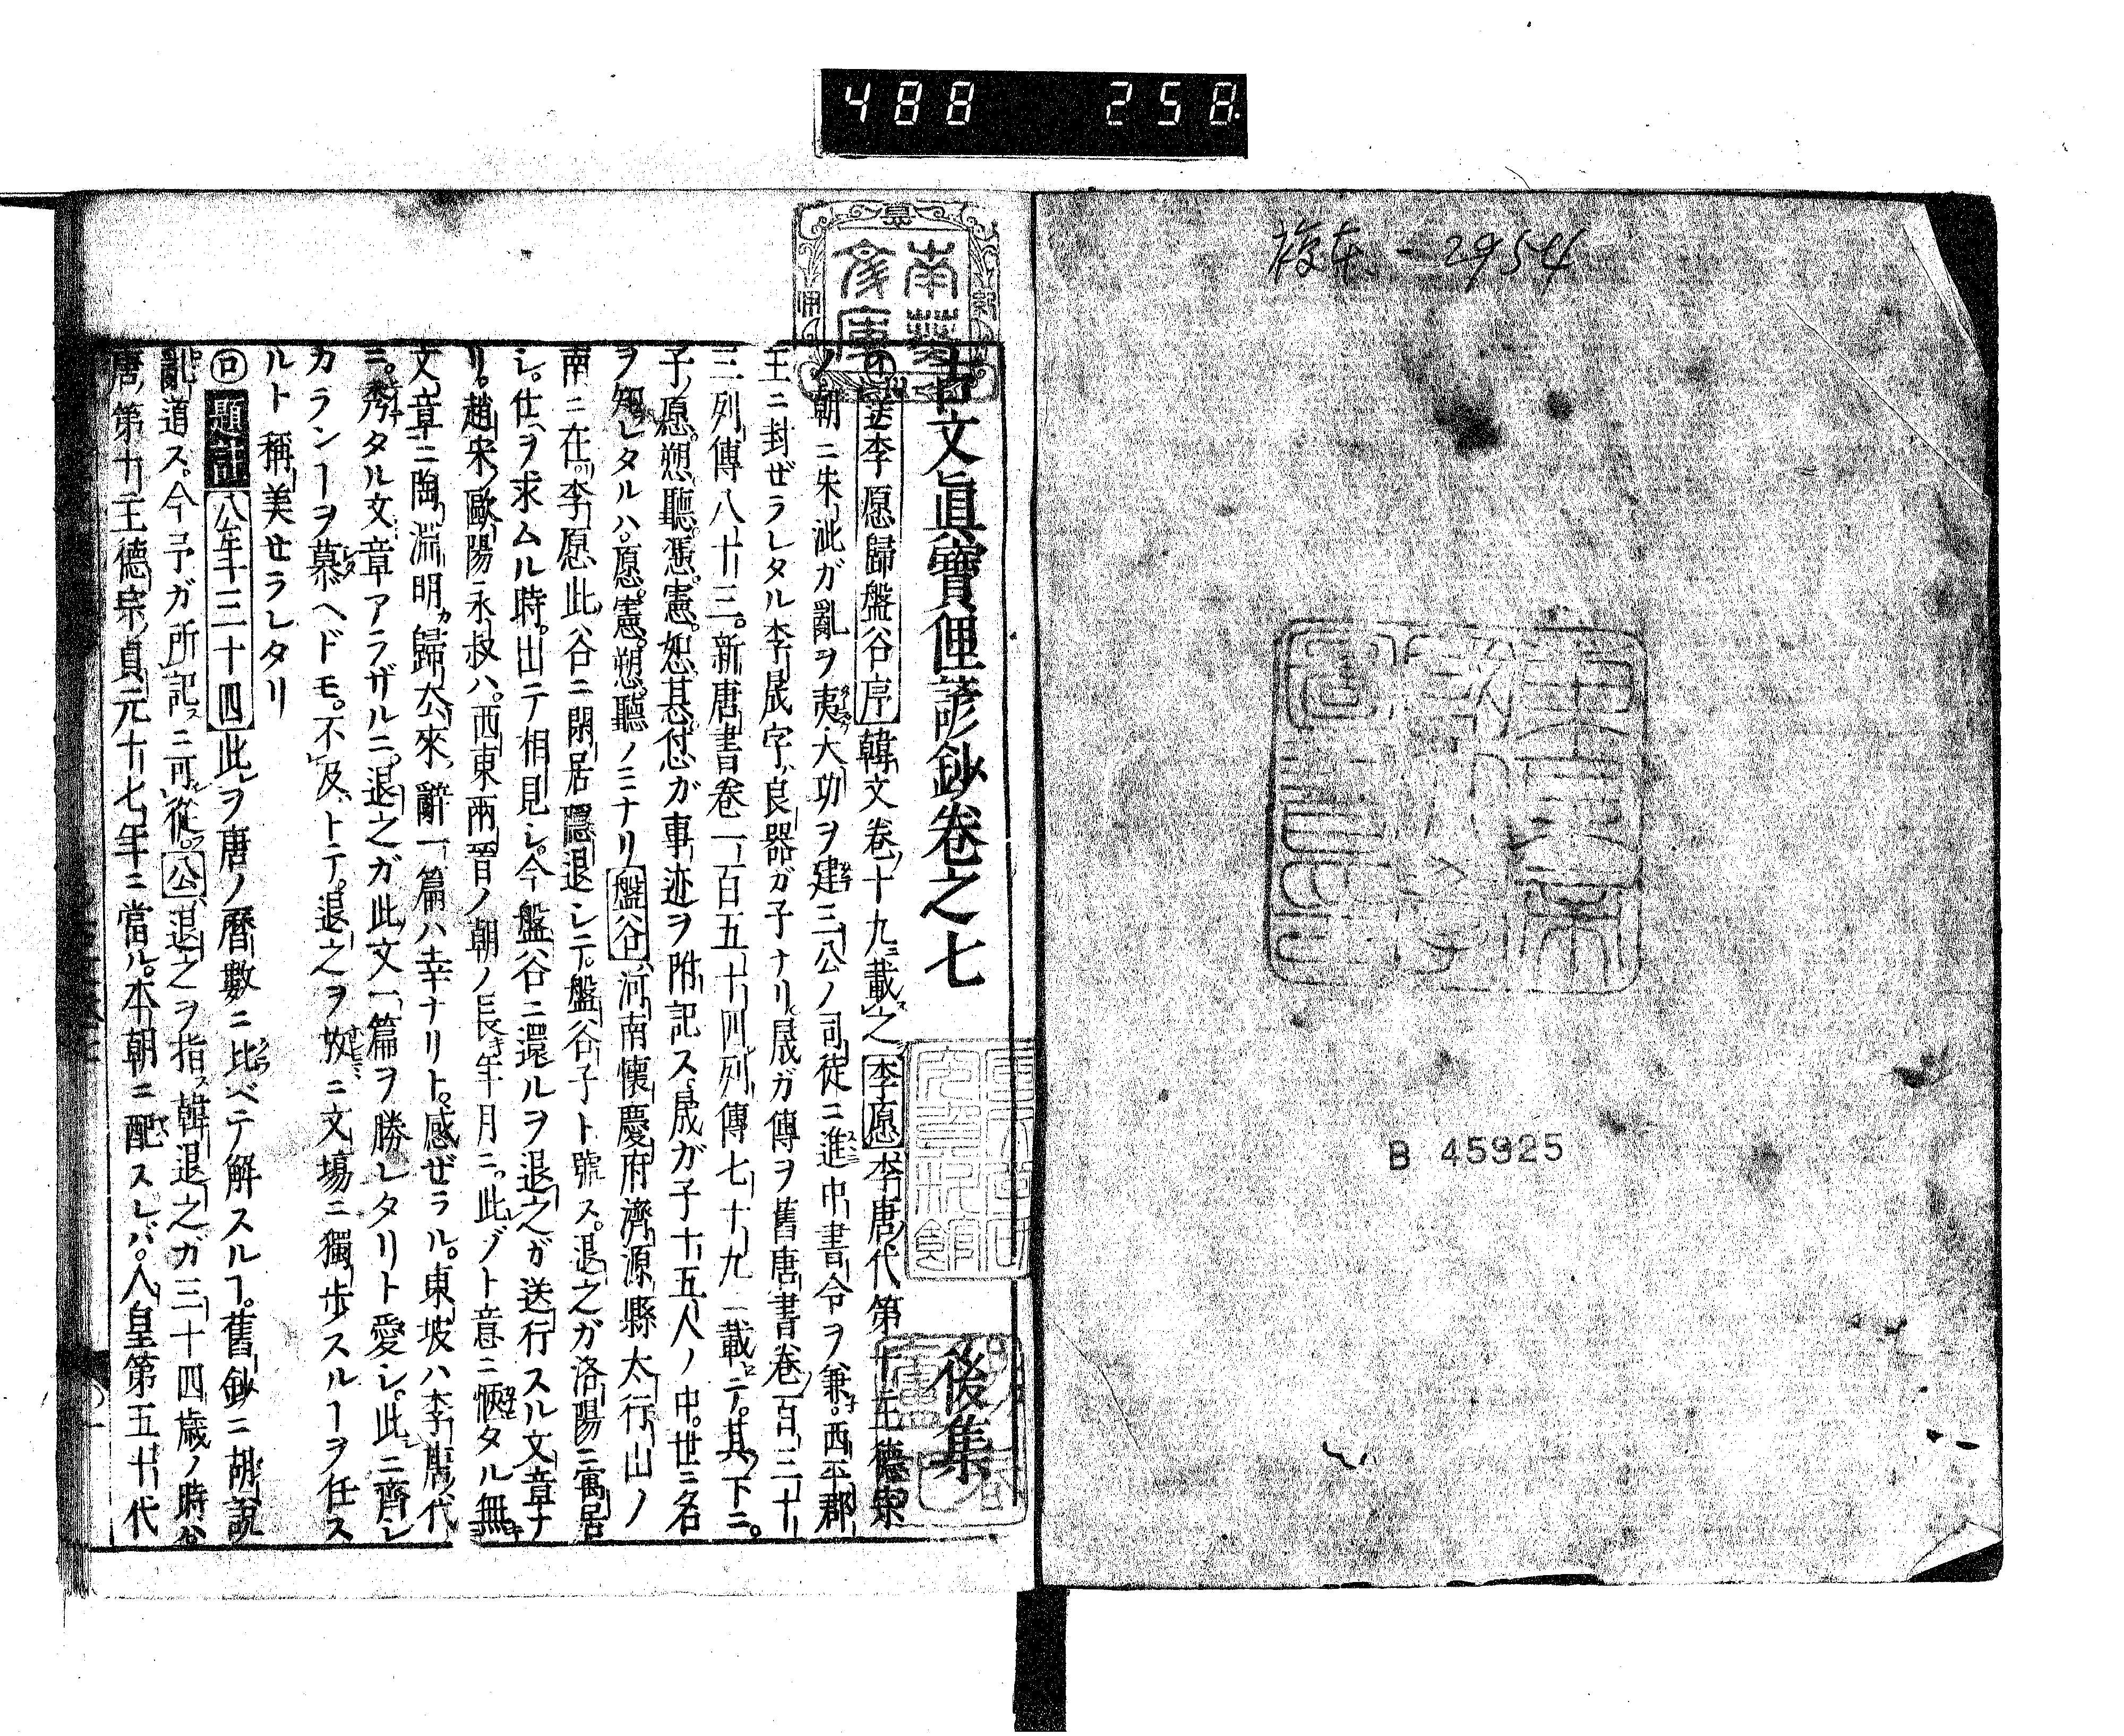 488 258.
複本-2954
B 45925
古文眞寶俚諺鈔卷之七 後集
送李愿歸盤谷序 韓文卷十九載之 李愿 李唐代第十主德宗
ノ朝ニ朱泚ガ亂ヲ夷大功ヲ建三公ノ司徒ニ進中書令ヲ兼。西平郡
王ニ封ゼラレタル李晟字良器ガ子ナリ晟ガ傳ヲ舊唐書卷一百三十
三列傳八十三。新唐書卷一百五十四列傳七十九ニ載テ。其下ニ。
子愿愬聽。憑憲。恕惎怤ガ事迹ヲ附記ス晟ガ子十五人ノ中。世ニ名
ヲ知レタルハ。愿。憲。愬。聽ノミナリ 盤谷 河南懷慶府濟源縣太行山ノ
南ニ在。李愿此谷ニ閑居隱退シテ。盤谷子ト號ス。退之ガ洛陽ニ寓居
シ。仕ヲ求ムル時。出テ相見シ。今盤谷ニ還ルヲ退之ガ送行スル文章ナ
リ。趙宋歐陽永叔ハ。西東兩晉ノ朝ノ長年月ニ。此ゾト意ニ愜タル無
文章ニ陶淵明ガ歸去來辭一篇ハ幸ナリト。感ゼラル。東坡ハ李唐代
ニ。秀タル文章アラザルニ。退之ガ此文一篇ヲ勝レタリト愛シ。此ニ齊シ
カランヿヲ慕ヘドモ。不及トテ。退之ヲ放ニ文場ニ獨步スルヿヲ任ス
ルト稱美セラレタリ
囗 題註 八年三十四 此ヲ唐ノ曆數ニ比ベテ解スルヿ。舊鈔ニ胡說
亂道ス。今予ガ所記ニ可從。公 退之ヲ指ス韓退之ガ三十四歲ノ時ハ
唐第十主德宗貞元十七年ニ當ル。本朝ニ配スレバ。人皇第五十代